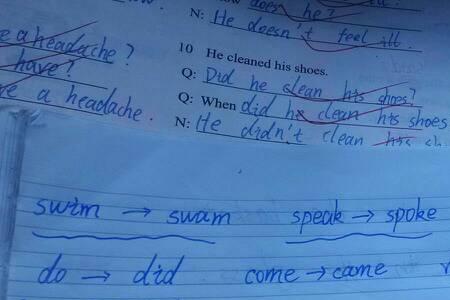 does he?
N: He doesn't feel ill.
e a headache?
have?
e a headache.
10 He cleaned his shoes.
Q: Did he clean his shoes?
Q: When did he clean his shoes
N: He didn't clean his sh
swim → swam speak → spoke
do → did come → came